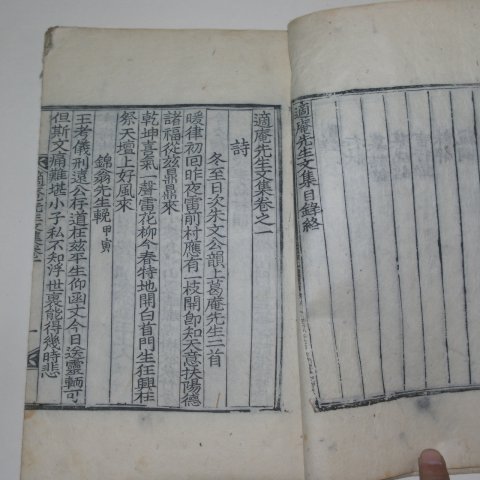 適庵先生文集目錄終
適庵先生文集卷之一
詩
冬至日次朱文公韻上葛庵先生二首
暖律初回昨夜雷前村應有一枝開卽知天意扶陽德
諸福從玆鼎鼎來
乾坤喜氣一聲雷花柳今春特地開白首門生狂興在
祭天壇上好風來
錦翁先生輓甲寅
王考儀刑遠公存道在玆平生仰函丈今日送靈輀可
但斯文痛難堪小子私不知浮世裏能得幾時悲
適庵先生文集卷一
一